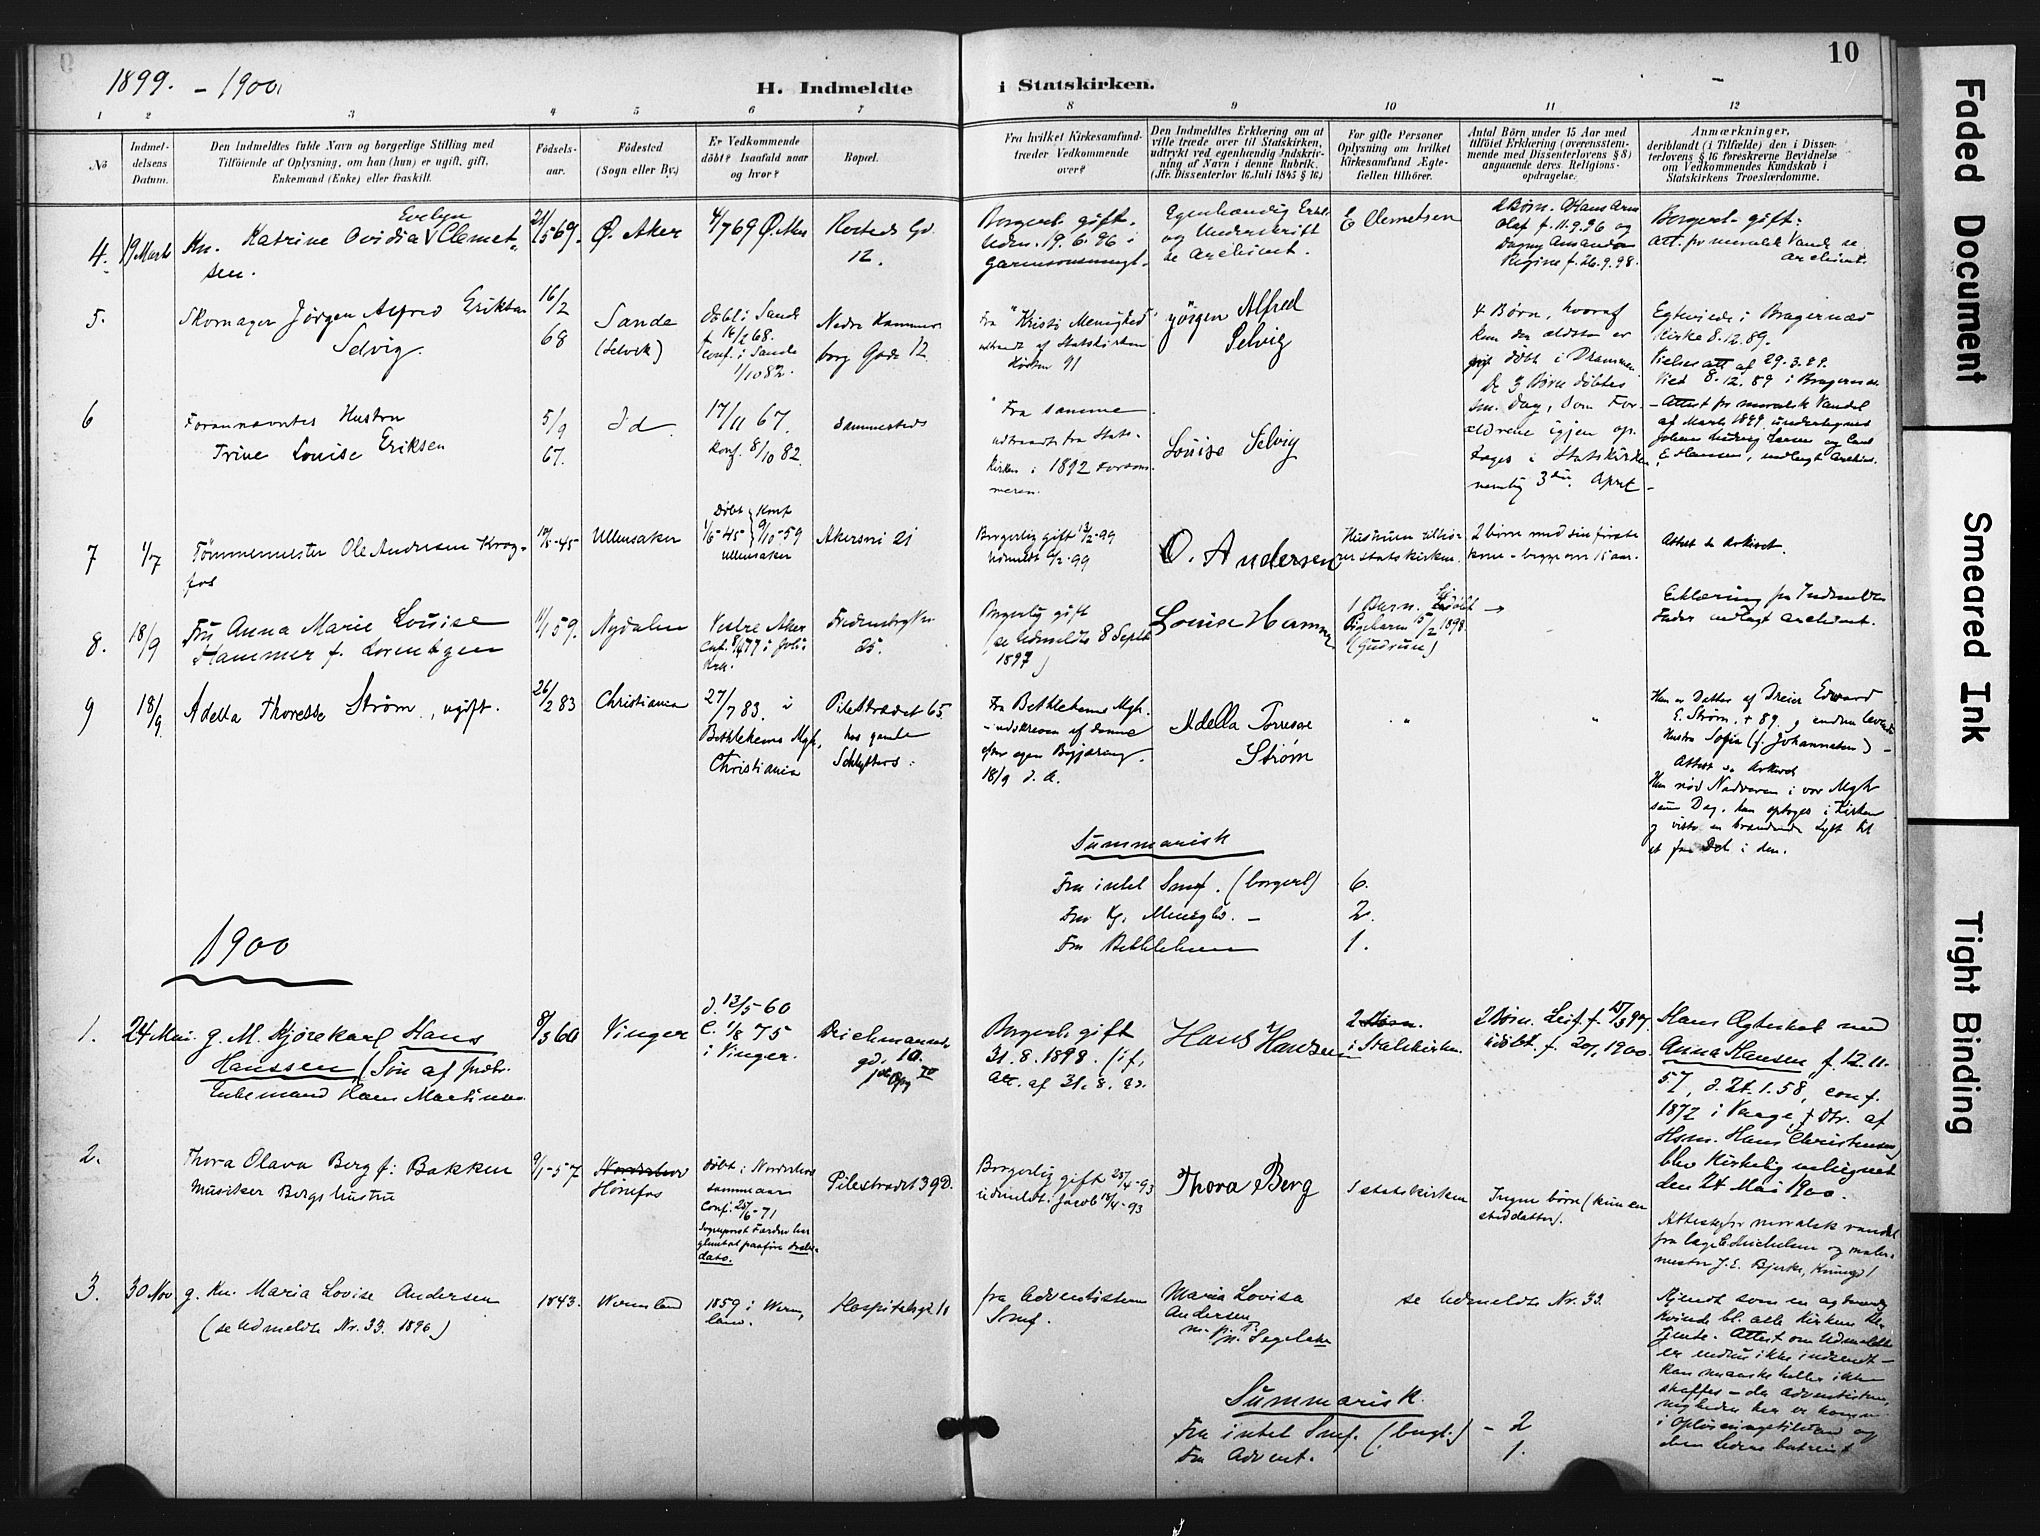 10
1899. - 1900.
H. Indmeldte i Statskirken.
1 2 3 4 5 6 7 8 9 10 11 12
Nö
Indmel-
delsens
Datum.
Den Indmeldtes fulde Navn og borgerlige Stilling med
Tilföiende af Oplysning, om han (hun) er ugift, gift,
Enkemand (Enke) eller fraskilt.
Födsels-
aar.
Födested
(Sogn eller By.)
Er Vedkommende
döbt? Isaafald naar
og hvor?
Bopæl.
Fra hvilket Kirkesamfund
træder Vedkommende
over?
Den Indmeldtes Erklæring om at
ville træde over til Statskirken,
udtrykt ved egenhændig Indskriv-
ning af Navn i denne Rubrik.
(Jfr. Dissenterlov 16 Juli 1845 § 16.)
For gifte Personer
Oplysning om hvilket
Kirkesamfund Ægte-
fællen tilhörer.
Antal Börn under 15 Aar med
tilföiet Erklæring (overensstem-
mende med Dissenterlovens § 8)
angaaende deres Religions-
opdragelse.
Anmærkninger,
deriblandt (i Tilfælde) den i Dissen-
terlovens § 16 foreskrevne Bevidnelse
om Vedkommendes Kundskab i
Statskirkens Troeslærdomme.
4. 19 Marts
Kn. Katrine Ovidia Evelyn Clemet-
sen.
21/5 69.
Ø. Aker
4/7 69 Ø. Aker
Rosteds Gd.
12.
Borgerl. gift.
Udm. 19.6.96 i
Garnisonsmenigt.
Egenhændig Erkl.
og Underskrift
se Archivet.
E Clemetsen
2 Børn. Hans Arne
Olaf f. 11.9.96 og
Dagny Amanda
Regine f. 26.9.98.
Borgerl. gift.
Att. for moralsk Vandel se
Archivet.
5.
Skomager Jörgen Alfred Eriksen
Selvig.
16/2
68
Sande
(Selvik)
Döbt i Sande
Conf. i Sande
1/10 82.
Nedre Hammer
borg Gade 12.
Fra "Kristi Menighed"
udtraadt af Statskirken
Høsten 91
Jörgen Alfred
Selvig
4 Børn, hvoraf
kun den ældste er
døbt i Drammen
De 3 Børn døbtes
sm. Dag, som For-
ældrene igjen op-
tages i Statskirken,
nemlig 3die April -
Egteviede i Bragernæs
Kirke 8.12.89.
Vielsesatt af 29.3.99.
Vied 8.12.89 i Bragernæs
6
Forannævntes Hustru
Trine Louise Eriksen
5/9
67.
Id
17/11 67.
Konf. 8/10 82.
sammesteds
Fra samme
udtraadt fra Stats-
kirken i 1892 Forsom-
meren.
Louise Selvig
- Attest for moralsk Vandel
af Marts 1899 undertegnet
Johan Ludvig Larsen og Carl
E Hansen, vedlagt Archiv.
7 1/7
Tømmermester Ole Andersen Krog-
fos
Ullensaker
Døbt Konf
1/6-45 9/10-59
Ullensaker
Akersvei 21
Borgerlig gift 13/2-99
Udmeldt 6/2-99
O. Andersen
Hustruen tilhø-
rer statskirken.
2 børn med sin første
kone - begge over 15 aar.
Attest se Arkivet.
8. 18/9
Fru Anna Marie Louise
Hammer f. Lorentzen
11/1 59.
Nydalen
Vestre Aker
Fredensborgvn.
25.
Borgerlig gift
(se Udmeldte 8 Septb.
1897)
Louise Hammer
1 Barn.
Pigebarn 15/2 1898.
(Gudrun)
Erklæring fra Indmeldtes
Fader vedlagt Archivet.
9 18/9
Adella Thoresse Strøm, ugift.
26/2 83
Christiania
27/7 83. i
Bethlehems Mgh,
Christiania
Pilestrædet 65.
hos gamle
Schlytters.
Fra Bethlehems Mgh.
- udskreven af denne
efter egen Begjæring.
18/9 d. A.
Adella Toresse
Strøm
Hun er Datter af Dreier Edward
E. Strøm, † 89. og endnu levende
Hustru Sofia (f. Johannesen) -
Attest i Arkivet
Hun nød Nadveren i vor Mgh
samme Dag, hun optoges i Kirken
Summarisk
Fra intet Smf. (borgerl) 6.
Fra Kr. Menighd. - 2.
Fra Bethlehem 1.
1900
1. 24 Mai
g. M. Kjørekarl Hans
Hanssen (Søn af
Enkemand Hans Martinsen
8/3 60
Vinger
d. 13/5-60
C. 1/8 75
i Vinger.
Deichmanns
gd. 10.
Opg IV
Borgerl. gift
31.8.1898. (if.
Att. af 31.8. 98.
Hans Hansen
i Statskirken.
2 Børn. Leif f. 15/3 97.
udøbt. f. 20/1 1900.
Hans Ægteskab med
Anna Hansen f. 12.11.
57, d. 24.1.58, conf.
1872 i Vaage, Dtr. af
Hsm. Hans Christensen
blev kirkelig velsignet
den 24 Mai 1900.
2.
Thora Olava Berg f: Bakken
Musiker Bergs hustru
9/1-57
Hønefos
døbt i Norderhov
samme aar
Conf. 25/6-71
Pilestrædet 39 D.
Borgerlig gift 25/4-93
udmeldt i Jacob 18/4-93
Thora Berg
I statskirken
Ingen børn (kun en
steddatter).
Attest for moralsk vandel
fra læge Michelsen og maler-
mester J. E. Bjerke,
3. 30 Nov
g. Kn. Maria Lovise Andersen
(se Udmeldte Nr. 33. 1896)
1843.
Wermland
1859 i Werm-
land.
Hospitalsgt. 10
fra Adventistern.
Smf.
Maria Lovisa
Andersen
m. p. p.
se Udmeldte Nr. 33.
Kjendt som en agtværdig
Kvinde bl. alle Kirkens Be-
tjente. Attest om Udmeldelse
er endnu ikke indsendt -
kan maaske heller ikke
skaffes - da Adventistme-
nigheden her er kommen
i Opløsningstilstand og
Summarisk.
Fra intet Smf. (borgl.) - 2
Fra Advent. 1.
Faded Document
Smeared Ink
Tight Binding